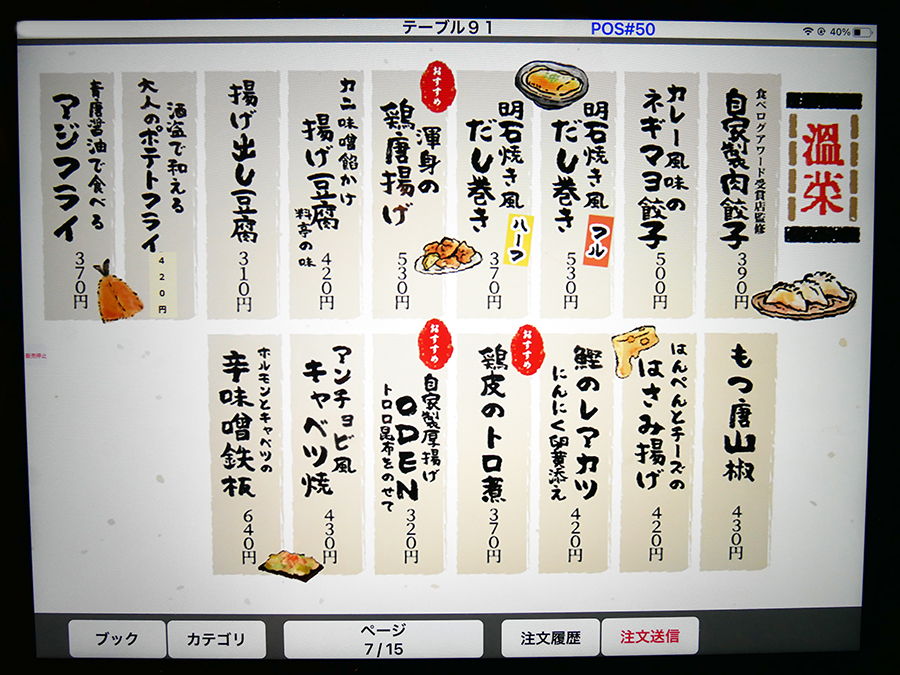 テーブル91
POS#50
40%
温菜
食べログアワード受賞店監修
自家製肉餃子
390円
カレー風味の
ネギマヨ餃子
500円
明石焼き風
だし巻き
フル
530円
明石焼き風
だし巻き
ハーフ
370円
おすすめ
渾身の
鶏唐揚げ
530円
カニ味噌餡かけ
揚げ豆腐
料亭の味
420円
揚げ出し豆腐
310円
酒盗で和える
大人のポテトフライ
420円
青唐醤油で食べる
アジフライ
370円
もつ唐山椒
430円
はんぺんとチーズの
はさみ揚げ
420円
鰹のレアカツ
にんにく卵黄添え
420円
おすすめ
鶏皮のトロ煮
370円
おすすめ
自家製厚揚げ
ODEN
トロロ昆布をのせて
320円
アンチョビ風
キャベツ焼
430円
ホルモンとキャベツの
辛味噌鉄板
640円
販売停止
ブック
カテゴリ
ページ
7/15
注文履歴
注文送信